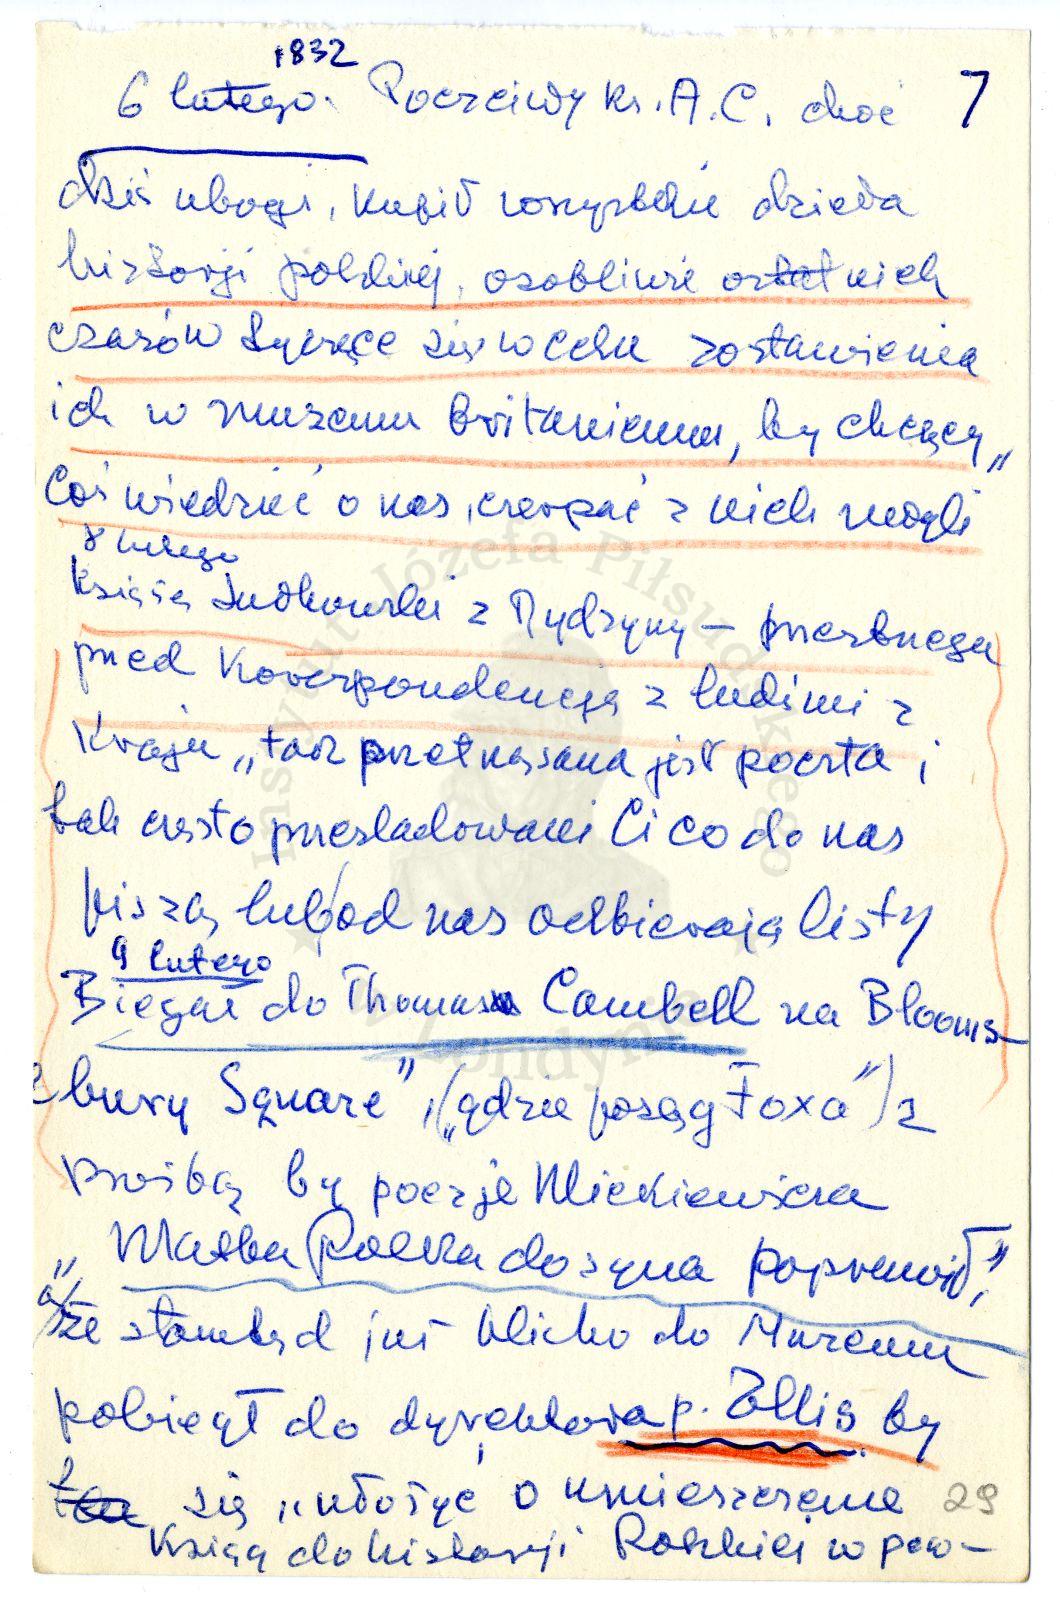 1832
6 lutego. Poczciwy ks. A.C. choć 7
dziś ubogi, kupił wszystkie dzieła
historji polskiej, osobliwie ostatnich
czasów tyczące się w celu zostawienia
ich w muzeum Britanicum, by chcący"
Coś wiedzieć o nas, czerpać z nich mogli
8 lutego
Książę Sułkowski z Rydzyny – przestrzega
przed Korespondencją z ludźmi z
Kraju „tak przetrząsana jest poczta i
tak często prześladowani Ci co do nas
piszą lub od nas odbierają listy
9 lutego
Biegał do Thomas Cambell na Blooms-
bury Square", („gdzie posąg Foxa") z
prośbą by poezje Mickiewicza
„Matka Polka do syna poprawił",
a że stamtąd już blisko do Muzeum
pobiegł do dyrektora p. Ellis by
się „ułożyć o umieszczenie 29
Ksiąg do historji Polskiej w pow-
Instytut Józefa Piłsudskiego
w Londynie